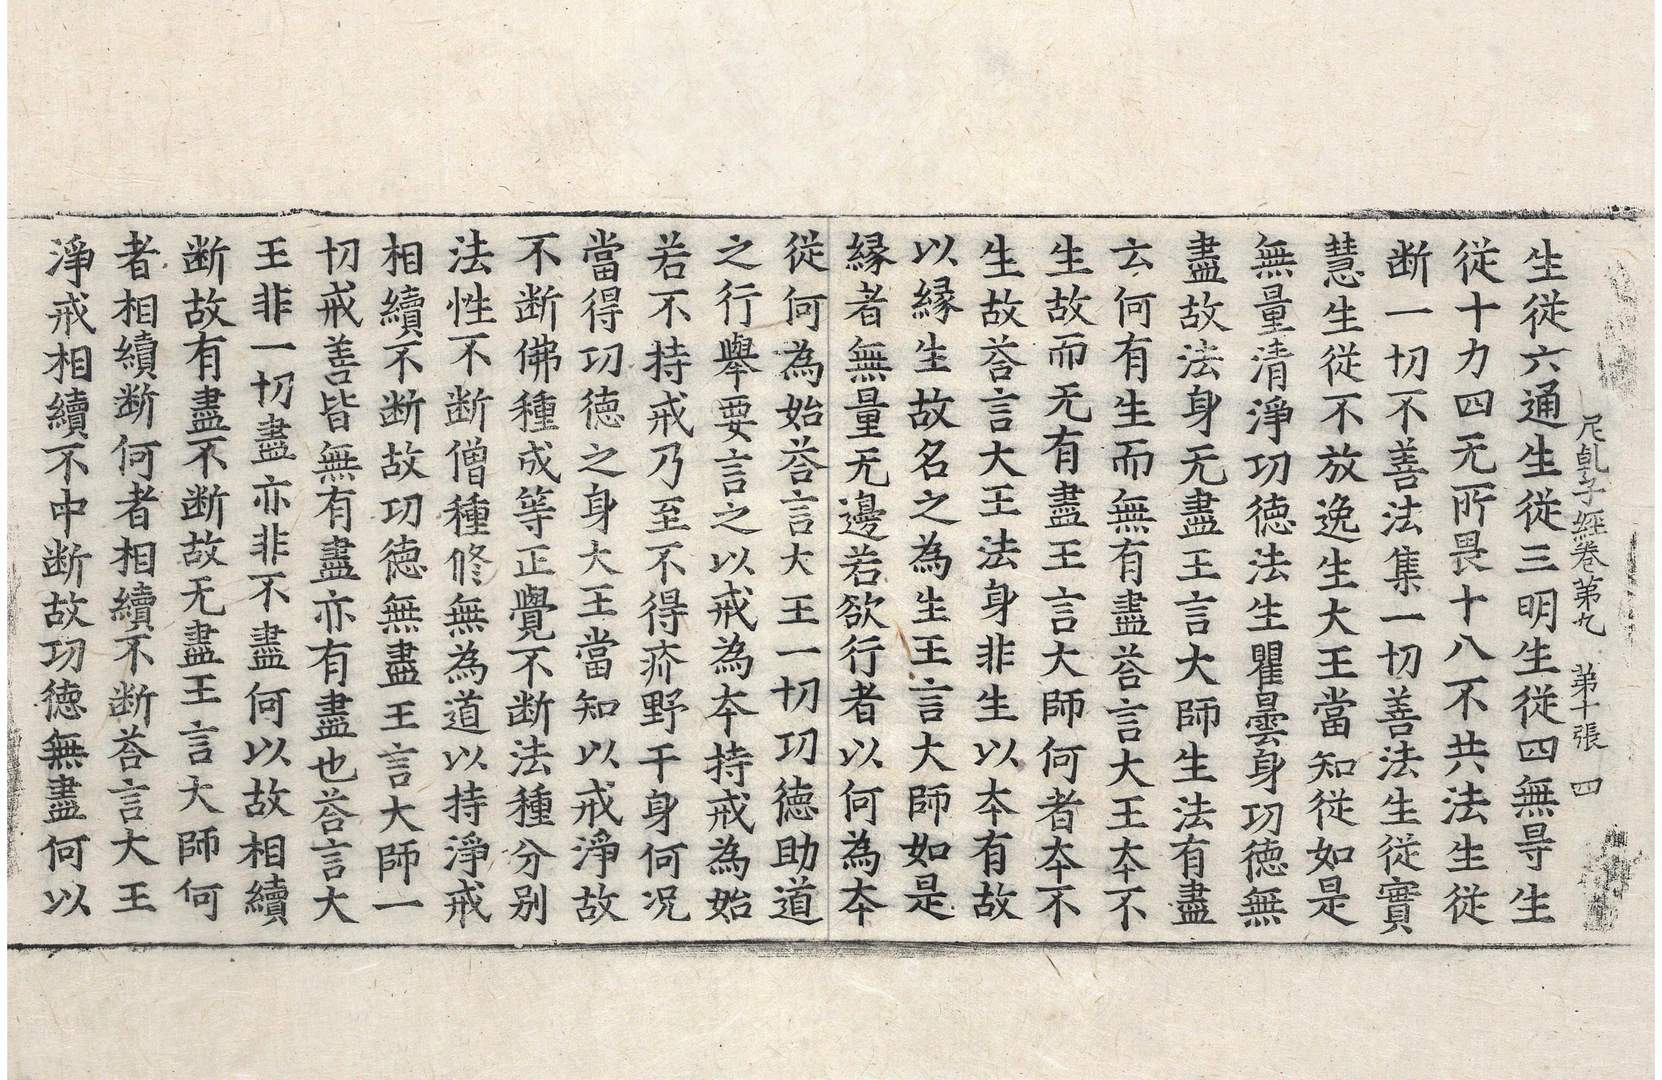 尼乹子經卷第九　第十張　四
生從六通生從三明生從四無㝵生
從十力四无所畏十八不共法生從
断一切不善法集一切善法生從實
慧生從不放逸生大王當知從如是
無量清淨功德法生瞿曇身功德無
盡故法身无盡王言大師生法有盡
云何有生而無有盡荅言大王夲不
生故而无有盡王言大師何者夲不
生故荅言大王法身非生以夲有故
以縁生故名之為生王言大師如是
縁者無量无邊若欲行者以何為夲
從何為始荅言大王一切功德助道
之行舉要言之以戒為夲持戒為始
若不持戒乃至不得疥野干身何况
當得功德之身大王當知以戒淨故
不断佛種成等正覺不断法種分别
法性不断僧種修無為道以持淨戒
相續不断故功德無盡王言大師一
切戒善皆無有盡亦有盡也荅言大
王非一切盡亦非不盡何以故相續
断故有盡不断故无盡王言大師何
者相續断何者相續不断荅言大王
淨戒相續不中断故功德無盡何以